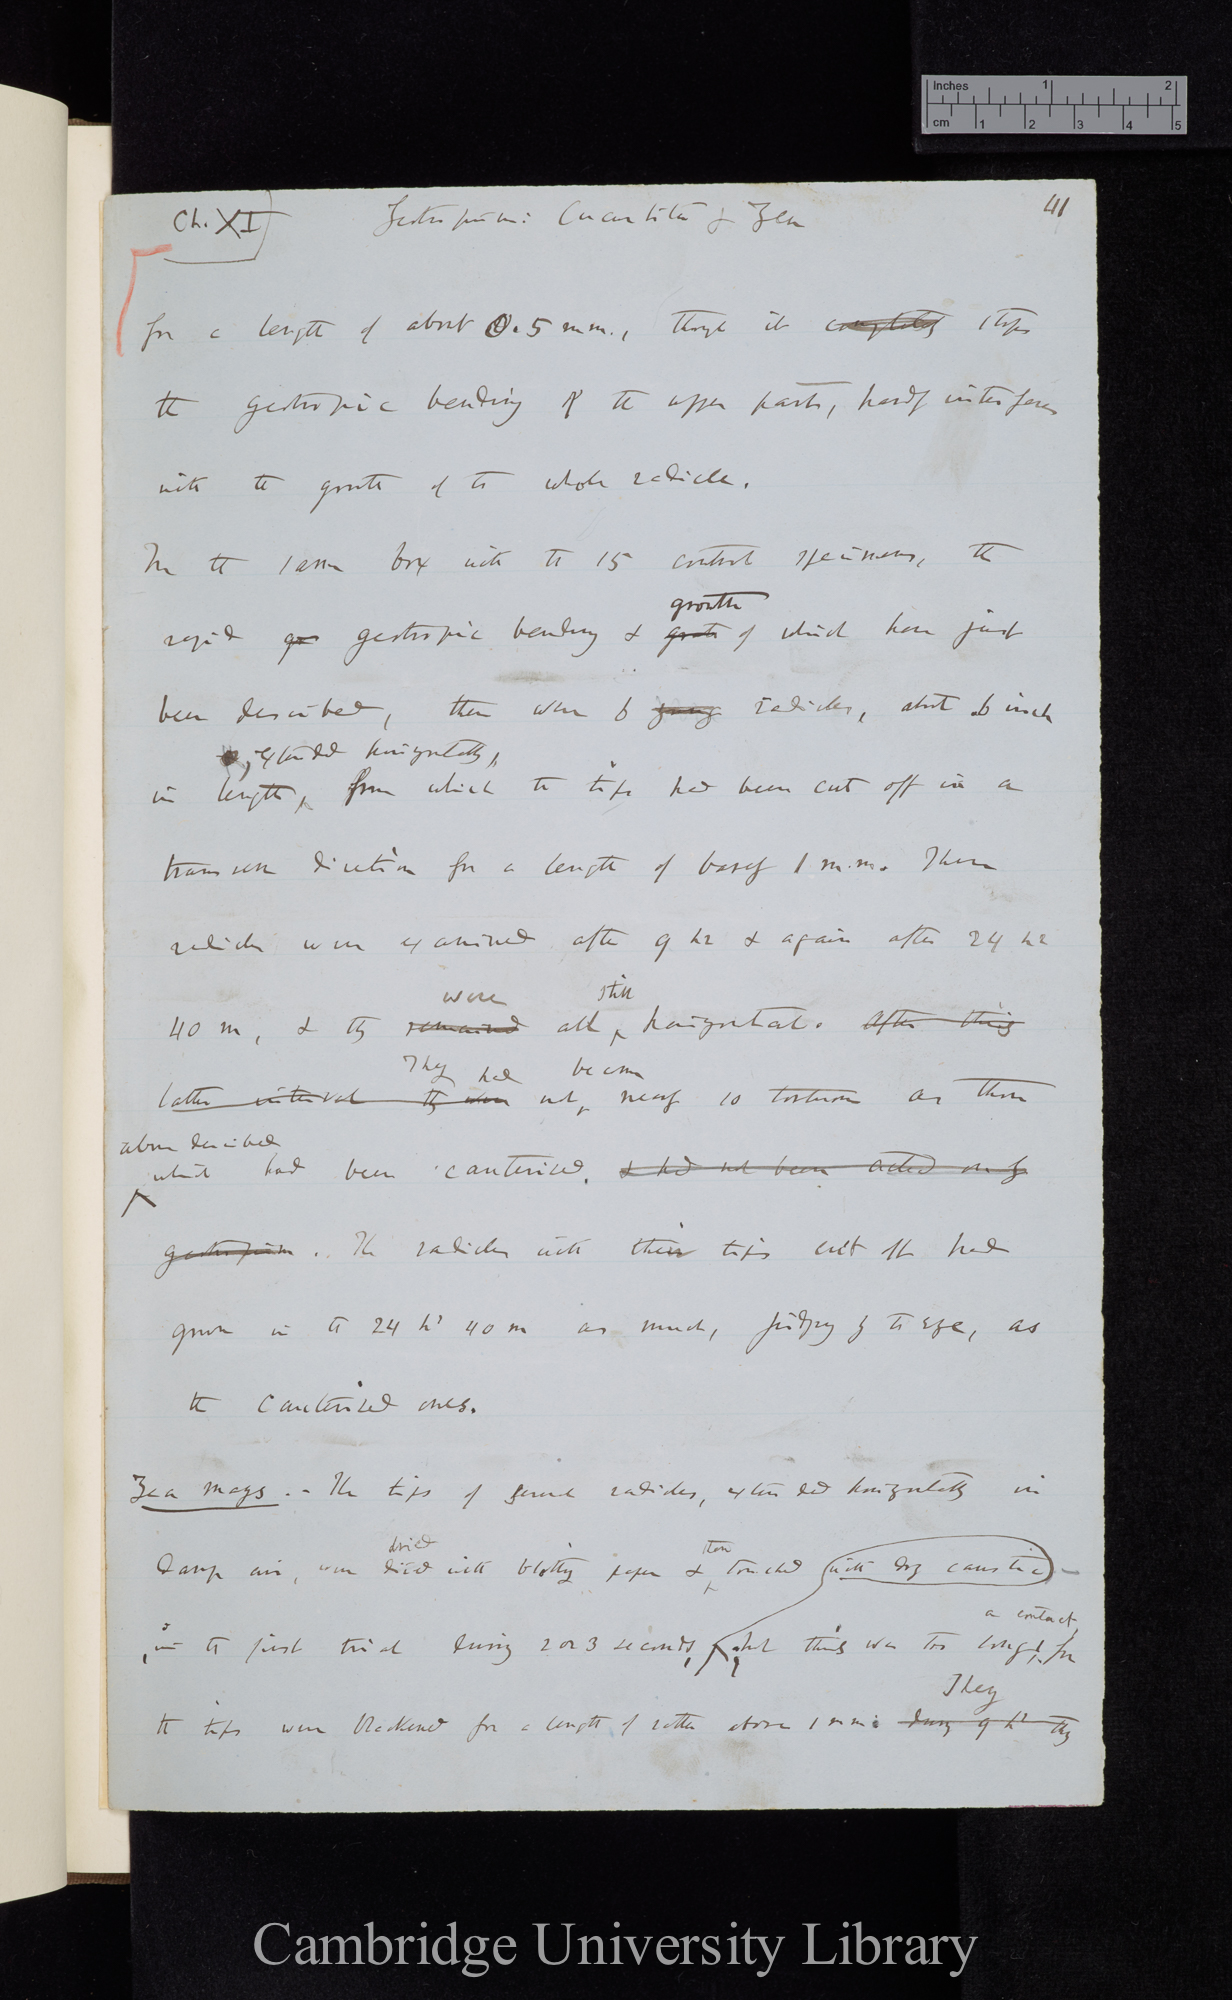 inches 1 2
cm 1 2 3 4 5
Ch. XI Geotropism: Cucurbita & Zea 41
for a length of about 0.5 m.m., though it completely stops
the geotropic bending of the upper parts, hardly interferes
with the growth of the whole radicle.
In the same box with the 15 control specimens, the
growth
rapid geotropic bending & growth of which have just
been described, there were 6 young radicles, about .6 inch
, extended horizontally,
in length, from which the tips had been cut off in a
transverse direction for a length of barely 1 m.m. These
radicles were examined after 9 hr & again after 24 hr
were still
40 m, & they remained all horizontal. After this
They had become
latter interval they were not nearly so tortuous as those
above described
which had been cauterised. & had not been acted on by
geotropism. The radicles with their tips cut off had
grown in the 24 hr 40 m as much, judging by the eye, as
the cauterised ones.
Zea mays. - The tips of several radicles, extended horizontally in
dried then
damp air, were dried with blotting paper & touched with dry caustic
a contact,
in the first trial during 2 or 3 seconds, but this was too long, for
They
the tips were blackened for a length of rather above 1 m.m. during 9 hr they
Cambridge University Library